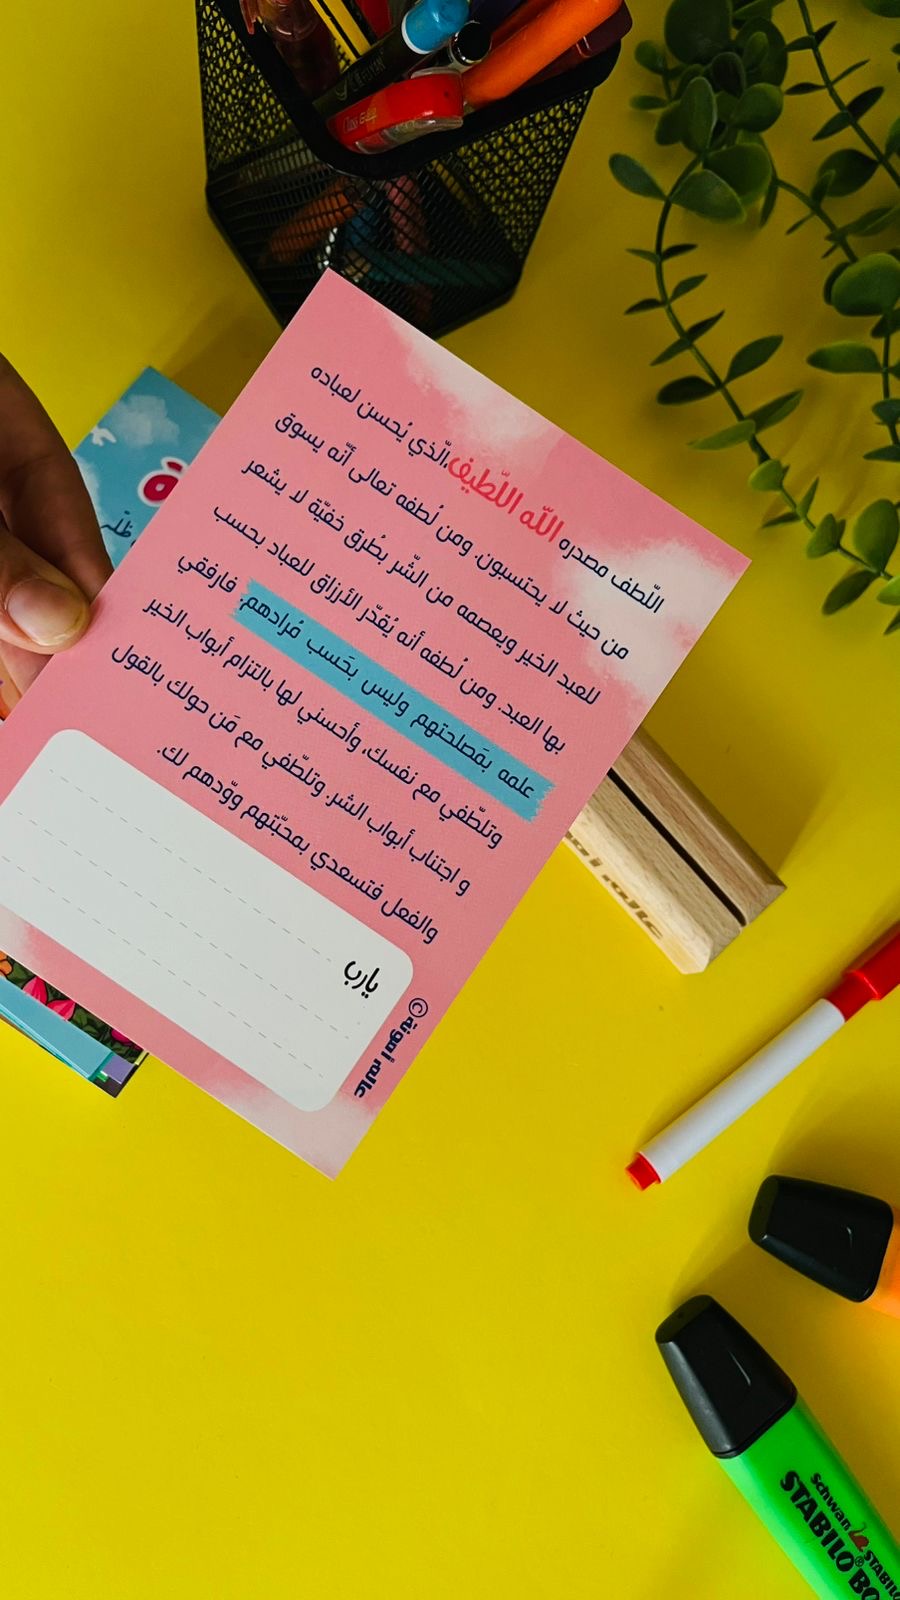 اللّطف مصدره اللّه اللّطيف، الّذي يُحسن لعباده
من حيث لا يحتسبون. ومن لُطفه تعالى أنّه يسوق
للعبد الخير ويعصمه من الشّر بطُرق خفيّة لا يشعر
بها العبد. ومن لُطفه أنه يُقدّر الأرزاق للعباد بحسب
علمه بمَصلحتهم وليس بحَسب مُرادهم. فارفقي
وتلطّفي مع نفسك، وأحسني لها بالتزام أبواب الخير
و اجتناب أبواب الشر. وتلطّفي مع مَن حولك بالقول
والفعل فتسعدي بمحبّتهم وودّهم لك.
يارب
عالم أمونة ©
Schwan STABILO
STABILO® BO